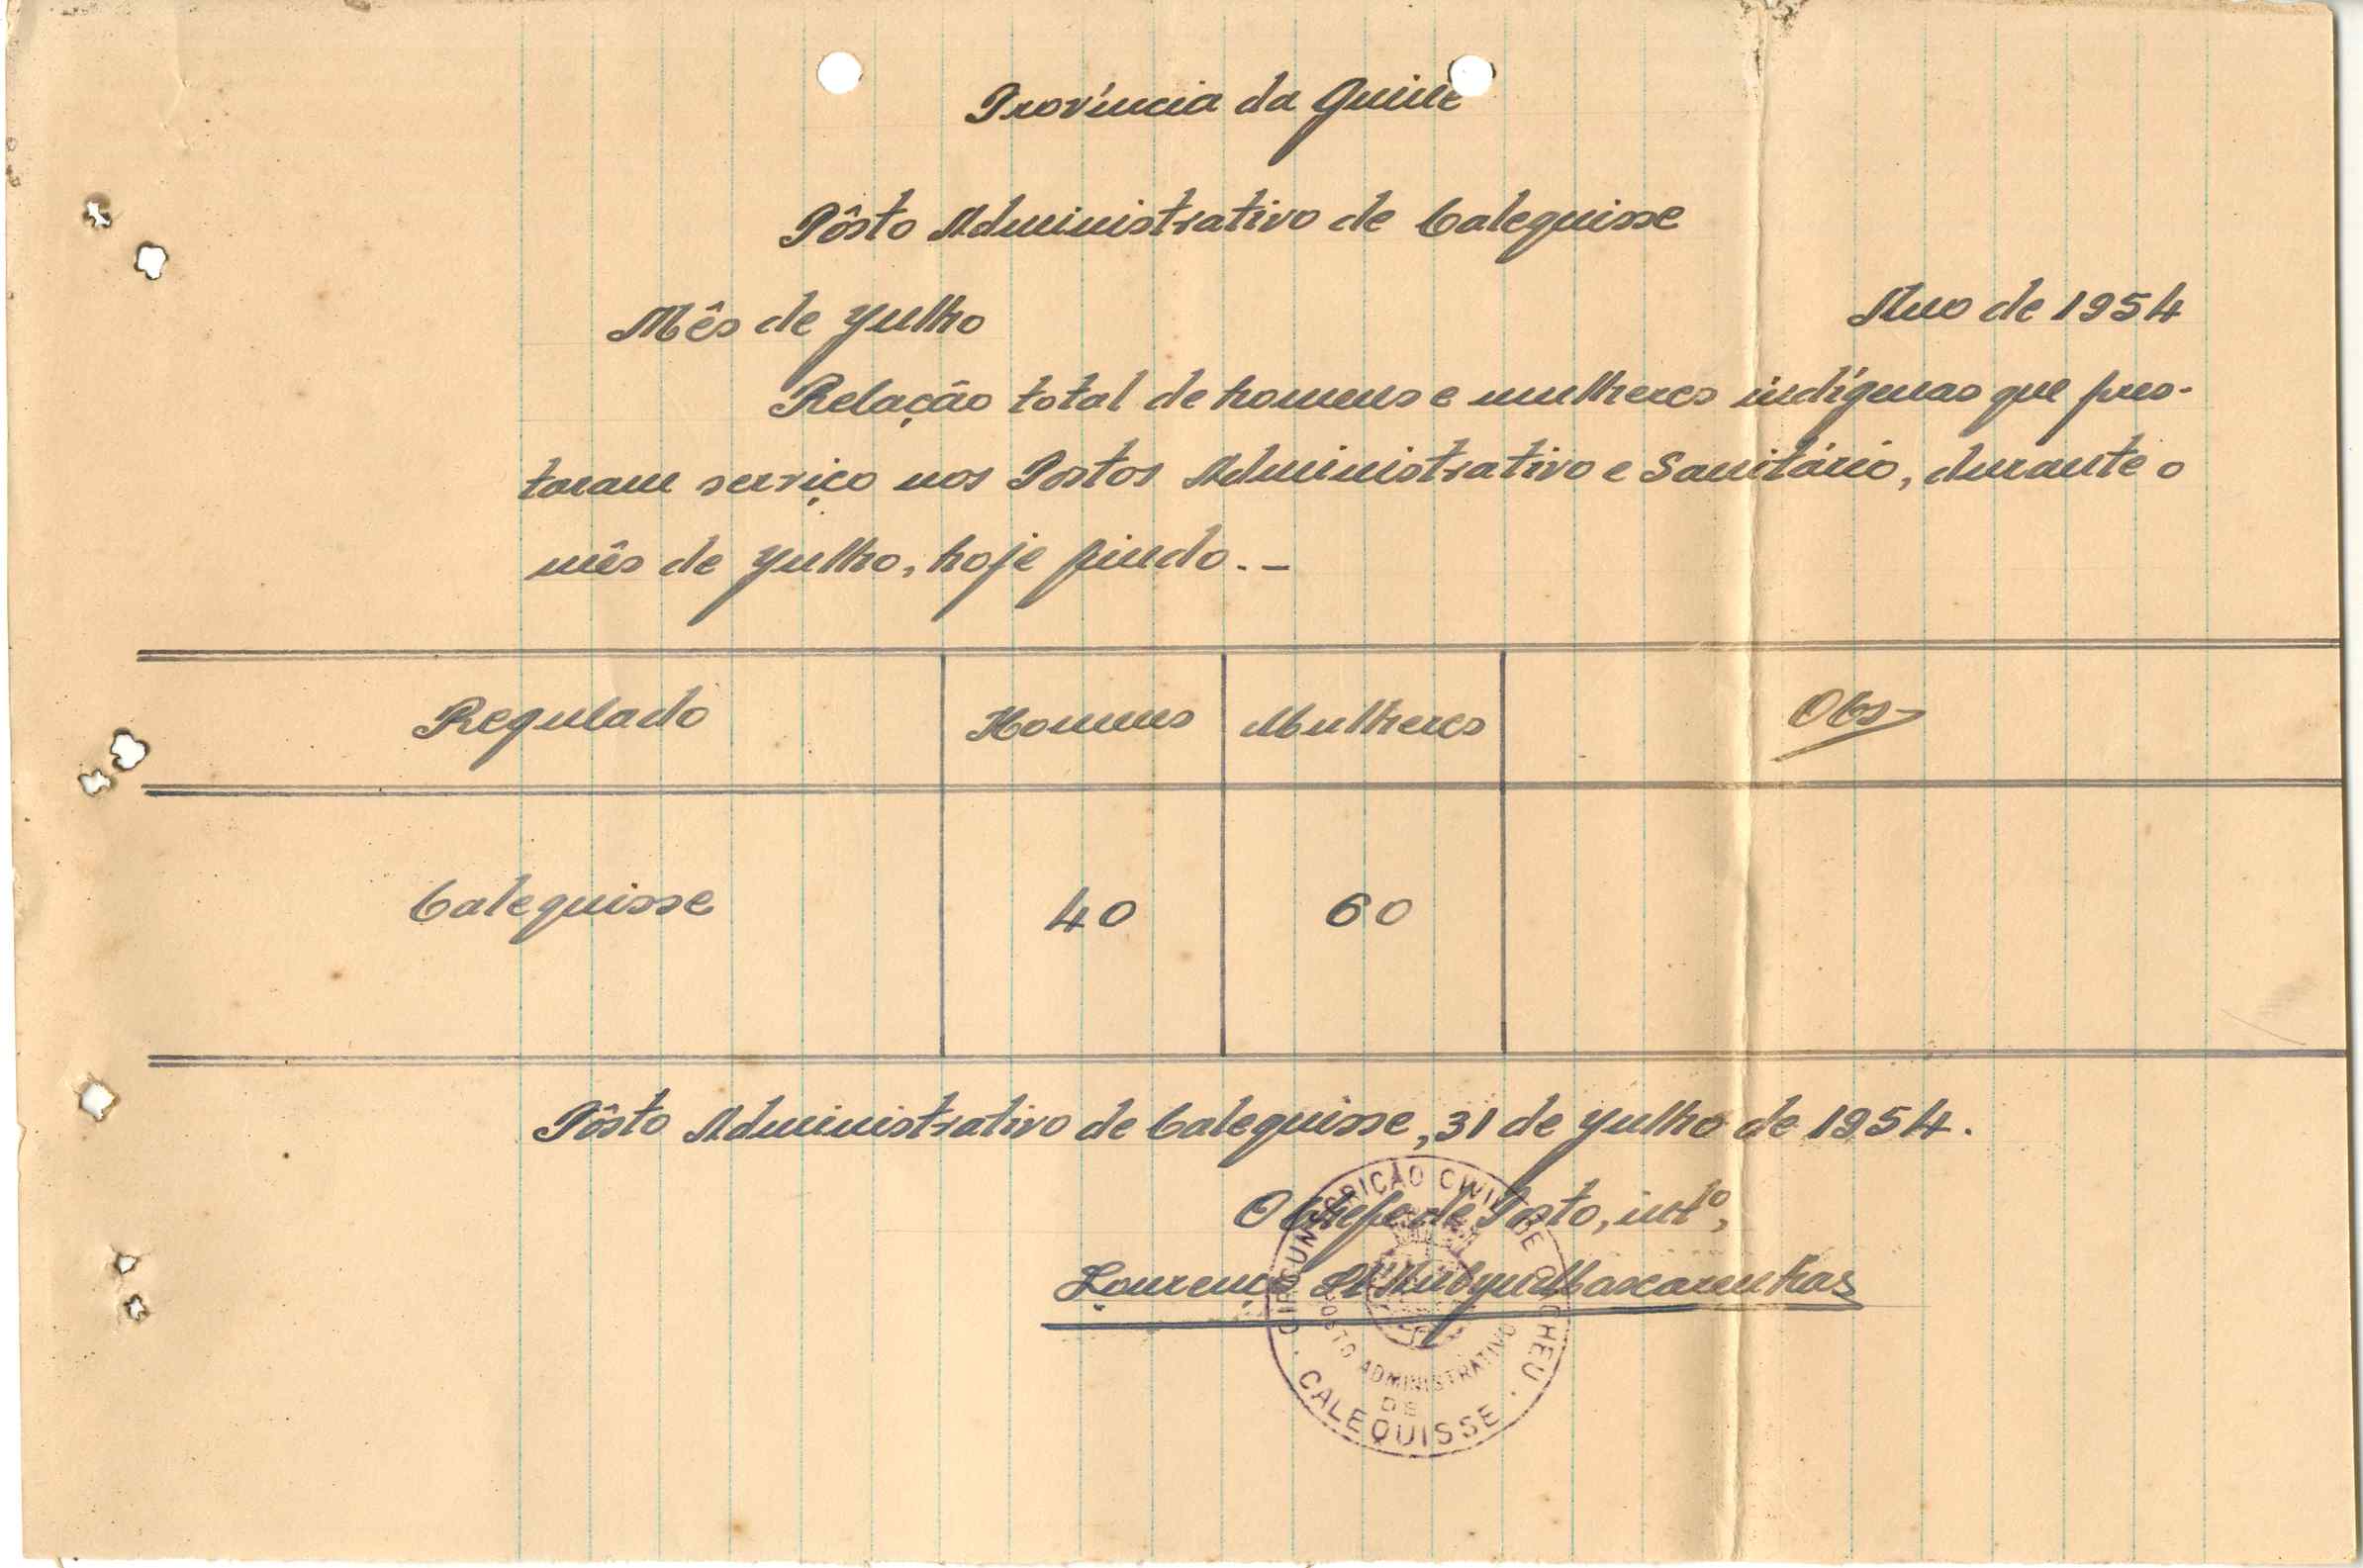 Província da Guiné
Pôsto Administrativo de Calequisse
Mês de Julho Ano de 1954
Relação total de homens e mulheres indígenas que pres-
taram serviço nos Postos Administrativo e Sanitário, durante o
mês de Julho, hoje findo.-
Regulado Homens Mulheres Obs
Calequisse 40 60
Pôsto Administrativo de Calequisse, 31 de Julho de 1954.
O Chefe de Posto, intº,
Lourenço Mascarenhas
CIRCUNSCRIÇÃO CIVIL DE CACHEU
POSTO ADMINISTRATIVO
DE
CALEQUISSE